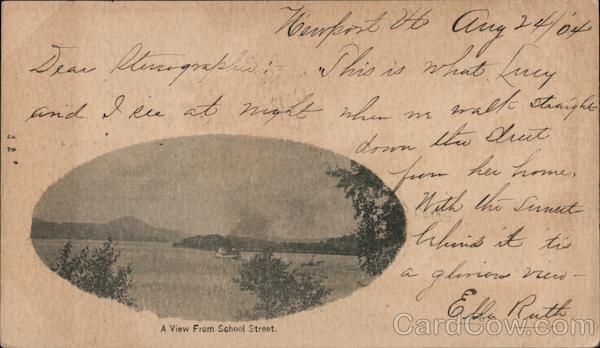 Newport Vt Aug 24/04
Dear Stenographer:- This is what Lucy
and I see at night when we walk straight
down the street
from her home.
With the sunset
behind it tis
a glorious view-
Ella Ruth
A View From School Street.
CardCow.com